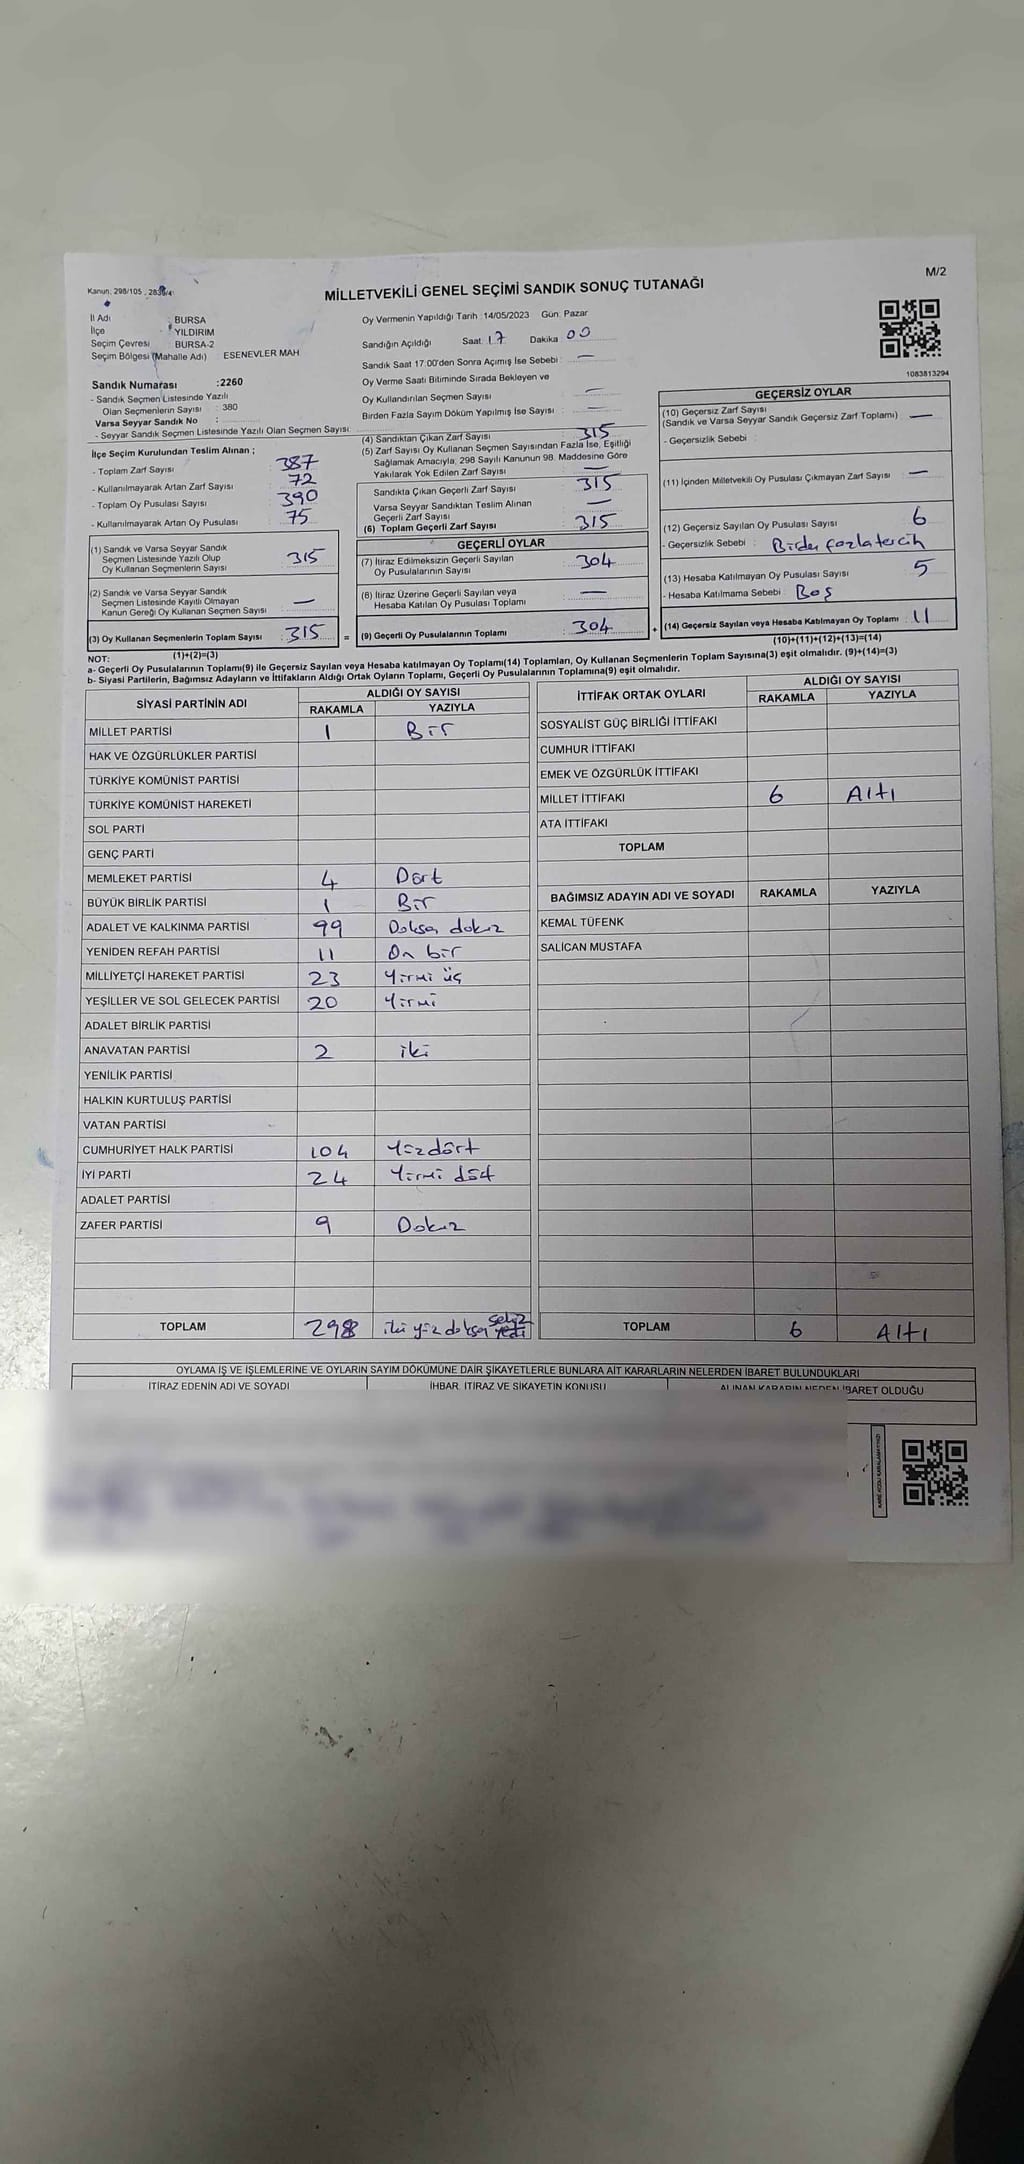 M/2
Kanun: 298/105 , 2839/4
MİLLETVEKİLİ GENEL SEÇİMİ SANDIK SONUÇ TUTANAĞI
İl Adı : BURSA
İlçe : YILDIRIM
Seçim Çevresi : BURSA-2
Seçim Bölgesi (Mahalle Adı) : ESENEVLER MAH
Sandık Numarası :2260
- Sandık Seçmen Listesinde Yazılı
Olan Seçmenlerin Sayısı : 380
Varsa Seyyar Sandık No :
- Seyyar Sandık Seçmen Listesinde Yazılı Olan Seçmen Sayısı:
İlçe Seçim Kurulundan Teslim Alınan ;
- Toplam Zarf Sayısı : 387
- Kullanılmayarak Artan Zarf Sayısı : 72
- Toplam Oy Pusulası Sayısı : 390
- Kullanılmayarak Artan Oy Pusulası : 75
(1) Sandık ve Varsa Seyyar Sandık
Seçmen Listesinde Yazılı Olup
Oy Kullanan Seçmenlerin Sayısı : 315
(2) Sandık ve Varsa Seyyar Sandık
Seçmen Listesinde Kayıtlı Olmayan
Kanun Gereği Oy Kullanan Seçmen Sayısı : —
(3) Oy Kullanan Seçmenlerin Toplam Sayısı : 315 =
(1)+(2)=(3)
Oy Vermenin Yapıldığı Tarih :14/05/2023 Gün: Pazar
Sandığın Açıldığı Saat : 17 Dakika : 00
Sandık Saat 17:00'den Sonra Açımış İse Sebebi : —
Oy Verme Saati Bitiminde Sırada Bekleyen ve
Oy Kullandırılan Seçmen Sayısı : —
Birden Fazla Sayım Döküm Yapılmış İse Sayısı : —
(4) Sandıktan Çıkan Zarf Sayısı : 315
(5) Zarf Sayısı Oy Kullanan Seçmen Sayısından Fazla İse, Eşitliği
Sağlamak Amacıyla, 298 Sayılı Kanunun 98. Maddesine Göre
Yakılarak Yok Edilen Zarf Sayısı : —
Sandıkta Çıkan Geçerli Zarf Sayısı : 315
Varsa Seyyar Sandıktan Teslim Alınan
Geçerli Zarf Sayısı : —
(6) Toplam Geçerli Zarf Sayısı : 315
GEÇERLİ OYLAR
(7) İtiraz Edilmeksizin Geçerli Sayılan
Oy Pusulalarının Sayısı : 304
(8) İtiraz Üzerine Geçerli Sayılan veya
Hesaba Katılan Oy Pusulası Toplamı : —
(9) Geçerli Oy Pusulalarının Toplamı : 304 +
1083813294
GEÇERSİZ OYLAR
(10) Geçersiz Zarf Sayısı
(Sandık ve Varsa Seyyar Sandık Geçersiz Zarf Toplamı) : —
- Geçersizlik Sebebi :
(11) İçinden Milletvekili Oy Pusulası Çıkmayan Zarf Sayısı : —
(12) Geçersiz Sayılan Oy Pusulası Sayısı : 6
- Geçersizlik Sebebi : Birden fazla tercih
(13) Hesaba Katılmayan Oy Pusulası Sayısı : 5
- Hesaba Katılmama Sebebi : Boş
(14) Geçersiz Sayılan veya Hesaba Katılmayan Oy Toplamı : 11
(10)+(11)+(12)+(13)=(14)
NOT:
a- Geçerli Oy Pusulalarının Toplamı(9) ile Geçersiz Sayılan veya Hesaba katılmayan Oy Toplamı(14) Toplamları, Oy Kullanan Seçmenlerin Toplam Sayısına(3) eşit olmalıdır. (9)+(14)=(3)
b- Siyasi Partilerin, Bağımsız Adayların ve İttifakların Aldığı Ortak Oyların Toplamı, Geçerli Oy Pusulalarının Toplamına(9) eşit olmalıdır.
SİYASİ PARTİNİN ADI ALDIĞI OY SAYISI
RAKAMLA YAZIYLA
MİLLET PARTİSİ 1 Bir
HAK VE ÖZGÜRLÜKLER PARTİSİ
TÜRKİYE KOMÜNİST PARTİSİ
TÜRKİYE KOMÜNİST HAREKETİ
SOL PARTİ
GENÇ PARTİ
MEMLEKET PARTİSİ 4 Dört
BÜYÜK BİRLİK PARTİSİ 1 Bir
ADALET VE KALKINMA PARTİSİ 99 Doksan dokuz
YENİDEN REFAH PARTİSİ 11 On bir
MİLLİYETÇİ HAREKET PARTİSİ 23 Yirmi üç
YEŞİLLER VE SOL GELECEK PARTİSİ 20 Yirmi
ADALET BİRLİK PARTİSİ
ANAVATAN PARTİSİ 2 iki
YENİLİK PARTİSİ
HALKIN KURTULUŞ PARTİSİ
VATAN PARTİSİ
CUMHURİYET HALK PARTİSİ 104 Yüzdört
İYİ PARTİ 24 Yirmi dört
ADALET PARTİSİ
ZAFER PARTİSİ 9 Dokuz
TOPLAM 298 iki yüz doksan sekiz
İTTİFAK ORTAK OYLARI ALDIĞI OY SAYISI
RAKAMLA YAZIYLA
SOSYALİST GÜÇ BİRLİĞİ İTTİFAKI
CUMHUR İTTİFAKI
EMEK VE ÖZGÜRLÜK İTTİFAKI
MİLLET İTTİFAKI 6 Altı
ATA İTTİFAKI
TOPLAM
BAĞIMSIZ ADAYIN ADI VE SOYADI RAKAMLA YAZIYLA
KEMAL TÜFENK
SALİCAN MUSTAFA
TOPLAM 6 Altı
OYLAMA İŞ VE İŞLEMLERİNE VE OYLARIN SAYIM DÖKÜMÜNE DAİR ŞİKAYETLERLE BUNLARA AİT KARARLARIN NELERDEN İBARET BULUNDUKLARI
İTİRAZ EDENİN ADI VE SOYADI İHBAR, İTİRAZ VE ŞİKAYETİN KONUSU ALINAN KARARIN NEDEN İBARET OLDUĞU